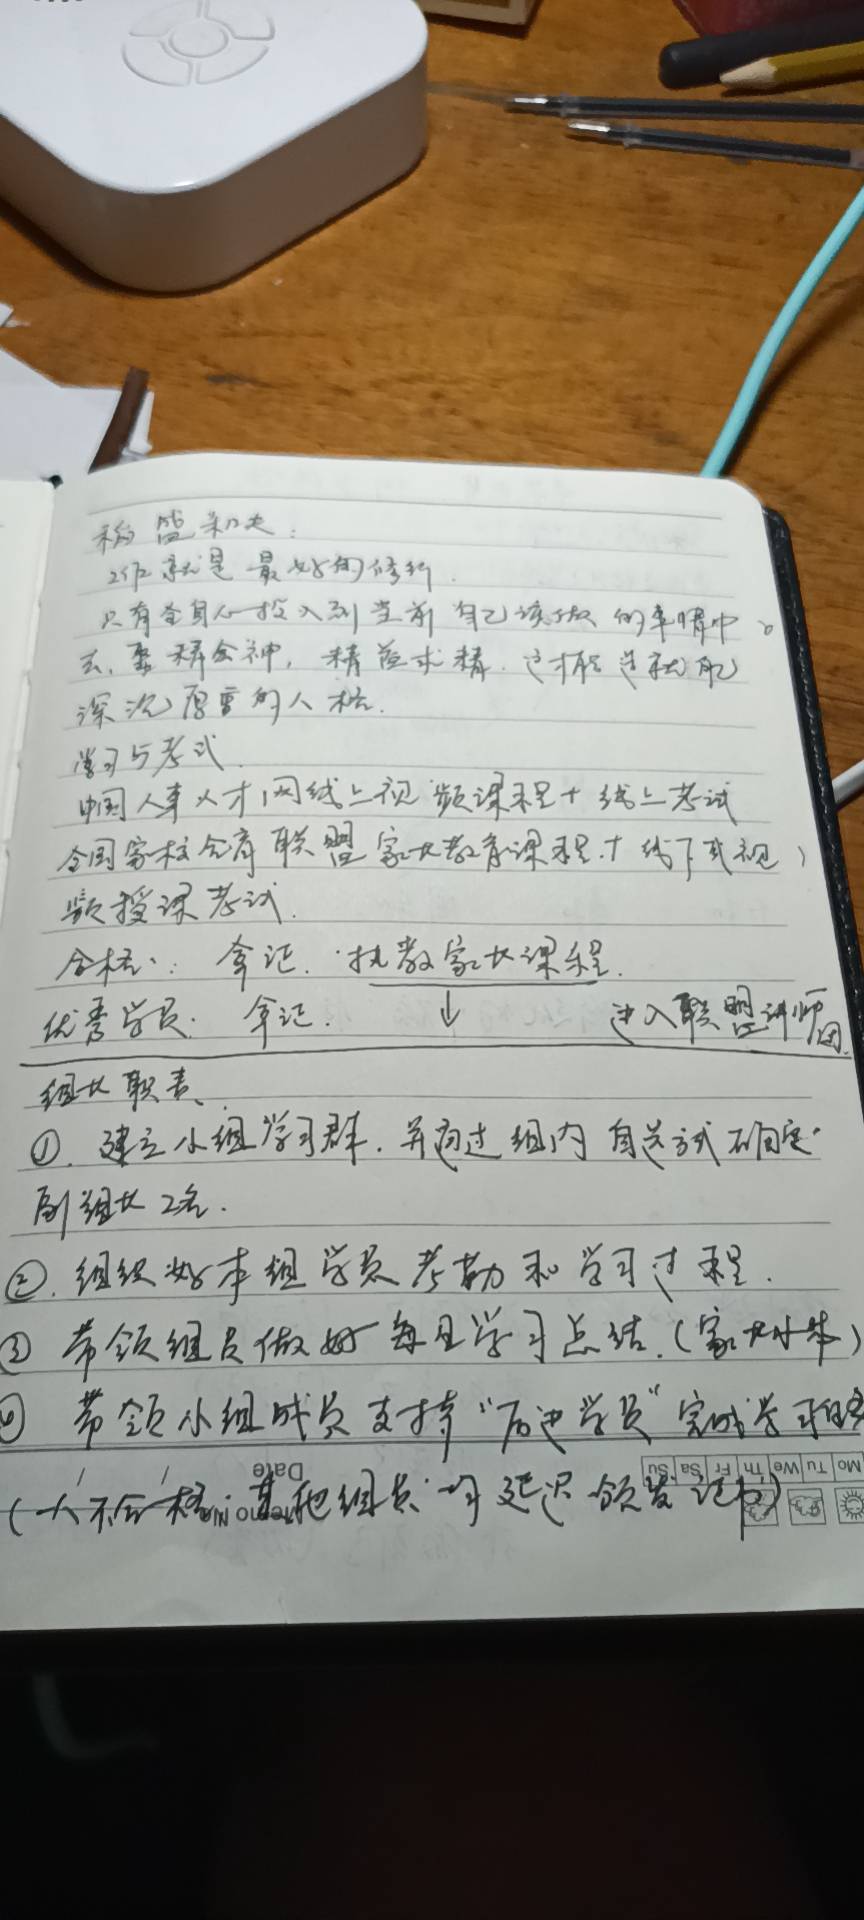 稻盛和夫:
工作就是最好的修行.
只有全身心投入到当前自己该做的事情中
去,聚精会神,精益求精.这才能造就配
深沉厚重的人格.
学习与考试.
中国人事人才网线上视频课程+线上考试
全国家校合育联盟家长教育课程.+线下或视
频授课考试.
合格: 拿证. 执教家长课程.
优秀学员: 拿证. ↓ 进入联盟讲师团.
组长职责、
①. 建立小组学习群.并通过组内自选方式确定
副组长2名.
②.组织好本组学员考勤和学习过程.
③ 带领组员做好每日学习总结.(家长小结)
④ 带领小组成员支持“后进学员”完成学习
(1人不合格,其他组员均延迟领发证书)
Mo Tu We Th Fr Sa Su
Memo No.
Date